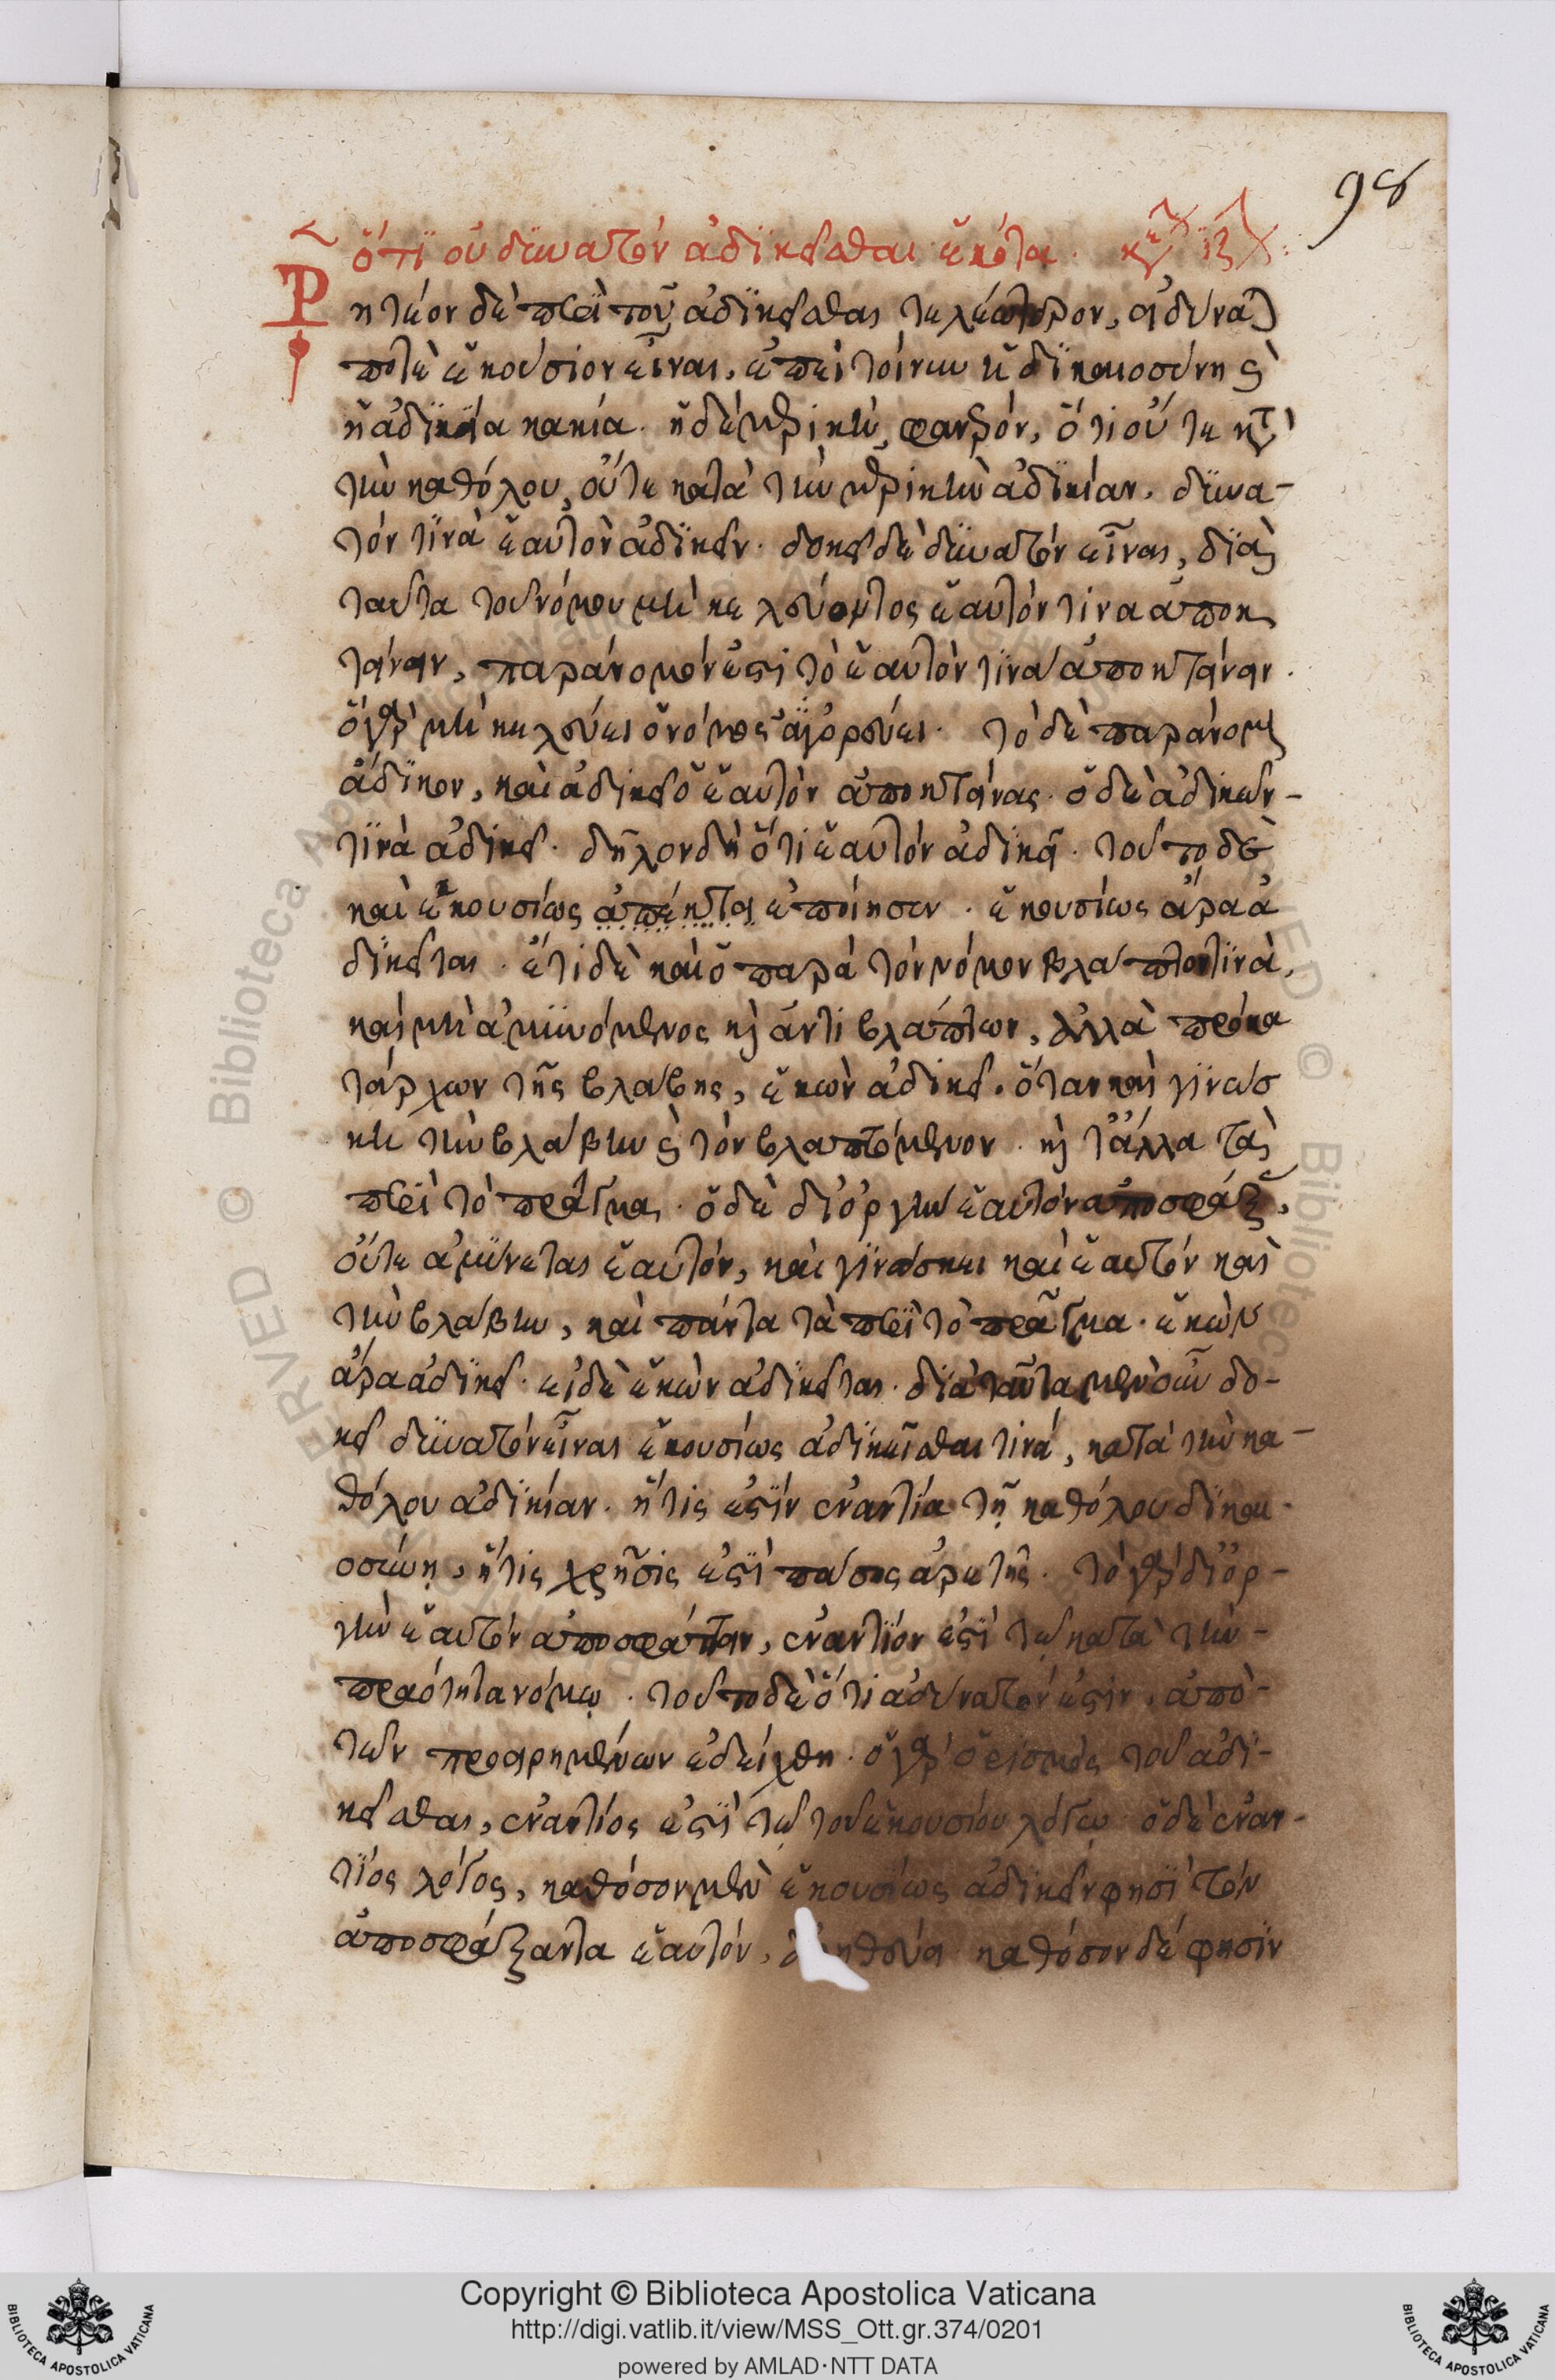 98
ὅτι οὐ δυνατὸν ἀδικεῖσθαι ἑκόντα. κεφ ιζ
Ρητέον δὲ περὶ τοῦ ἀδικεῖσθαι τελεώτερον, εἰ δύναται
ποτὲ ἑκούσιον εἶναι. ἐπεὶ τοίνυν ἡ δικαιοσύνης καὶ
ἡ ἀδικία κακία. ἡ δὲ μερικὴ, φανερόν, ὅτι οὔτε κατὰ
τὴν καθόλου, οὔτε κατὰ τὴν μερικὴν ἀδικίαν, δυνα-
τόν τινὰ ἑαυτὸν ἀδικεῖν. δοκεῖ δὲ δυνατὸν εἶναι, διὰ
ταῦτα τοῦ νόμου μὴ κελεύοντος ἑαυτόν τινα ἀποκ
τείνειν, παράνομόν ἐστι τὸ ἑαυτόν τινα ἀποκτείνειν.
ὃ γὰρ μὴ κελεύει ὁ νόμος ἀγορεύει. τὸ δὲ παράνομον
ἄδικον, καὶ ἀδικεῖ ὁ ἑαυτὸν ἀποκτείνας. ὁ δὲ ἀδικῶν-
τινὰ ἀδικεῖ. δῆλον δὴ ὅτι ἑαυτόν ἀδικεῖ. τοῦτο δὲ
καὶ ἑκουσίως ἀπέκτει ἐποίησεν. ἑκουσίως ἄρα ἀ
δικεῖται. ἔτι δὲ καὶ ὁ παρὰ τὸν νόμον βλάπτων τινὰ,
καὶ μὴ ἀμυνόμενος καὶ ἀντιβλάπτων, ἀλλὰ προκα
τάρχων τῆς βλάβης, ἑκὼν ἀδικεῖ. ὅταν καὶ γινώσ
κῃ τὴν βλάβην καὶ τὸν βλαπτόμενον. καὶ τἄλλα τὰ
περὶ τὸ πρᾶγμα. ὁ δὲ δι' ὀργὴν ἑαυτὸν ἀποσφάξας,
οὔτε ἀμύνεται ἑαυτόν, καὶ γινώσκει καὶ ἑαυτόν καὶ
τὴν βλάβην, καὶ πάντα τὰ περὶ τὸ πρᾶγμα. ἑκὼν
ἄρα ἀδικεῖ. εἰ δὲ ἑκὼν ἀδικεῖται. διὰ ταῦτα μὲν οὖν δο-
κεῖ δυνατὸν εἶναι ἑκουσίως ἀδικεῖσθαι τινά, κατὰ τὴν κα-
θόλου ἀδικίαν. ἥτις ἐστὶν ἐναντία τῇ καθόλου δικαι-
οσύνῃ, ἥτις χρῆσις ἐστὶ πάσης ἀρετῆς. τὸ γὰρ δι' ὀρ-
γὴν ἑαυτὸν ἀποσφάττειν, ἐναντίον ἐστὶ τῷ κατὰ τὴν-
πραότητα νόμῳ. τοῦτο δὲ ὅτι ἀδύνατόν ἐστιν, ἀπὸ-
τῶν προειρημένων ἐδείχθη. ὁ γὰρ ὁρισμὸς τοῦ ἀδι-
κεῖσθαι, ἐναντίος ἐστὶ τῷ τοῦ ἑκουσίου λόγῳ ὁ δὲ ἐναν-
τίος λόγος, καθόσον μὲν ἑκουσίως ἀδικεῖν φησὶ τὸν
ἀποσφάξαντα ἑαυτόν, ἀληθεύει καθόσον δέ φησὶν